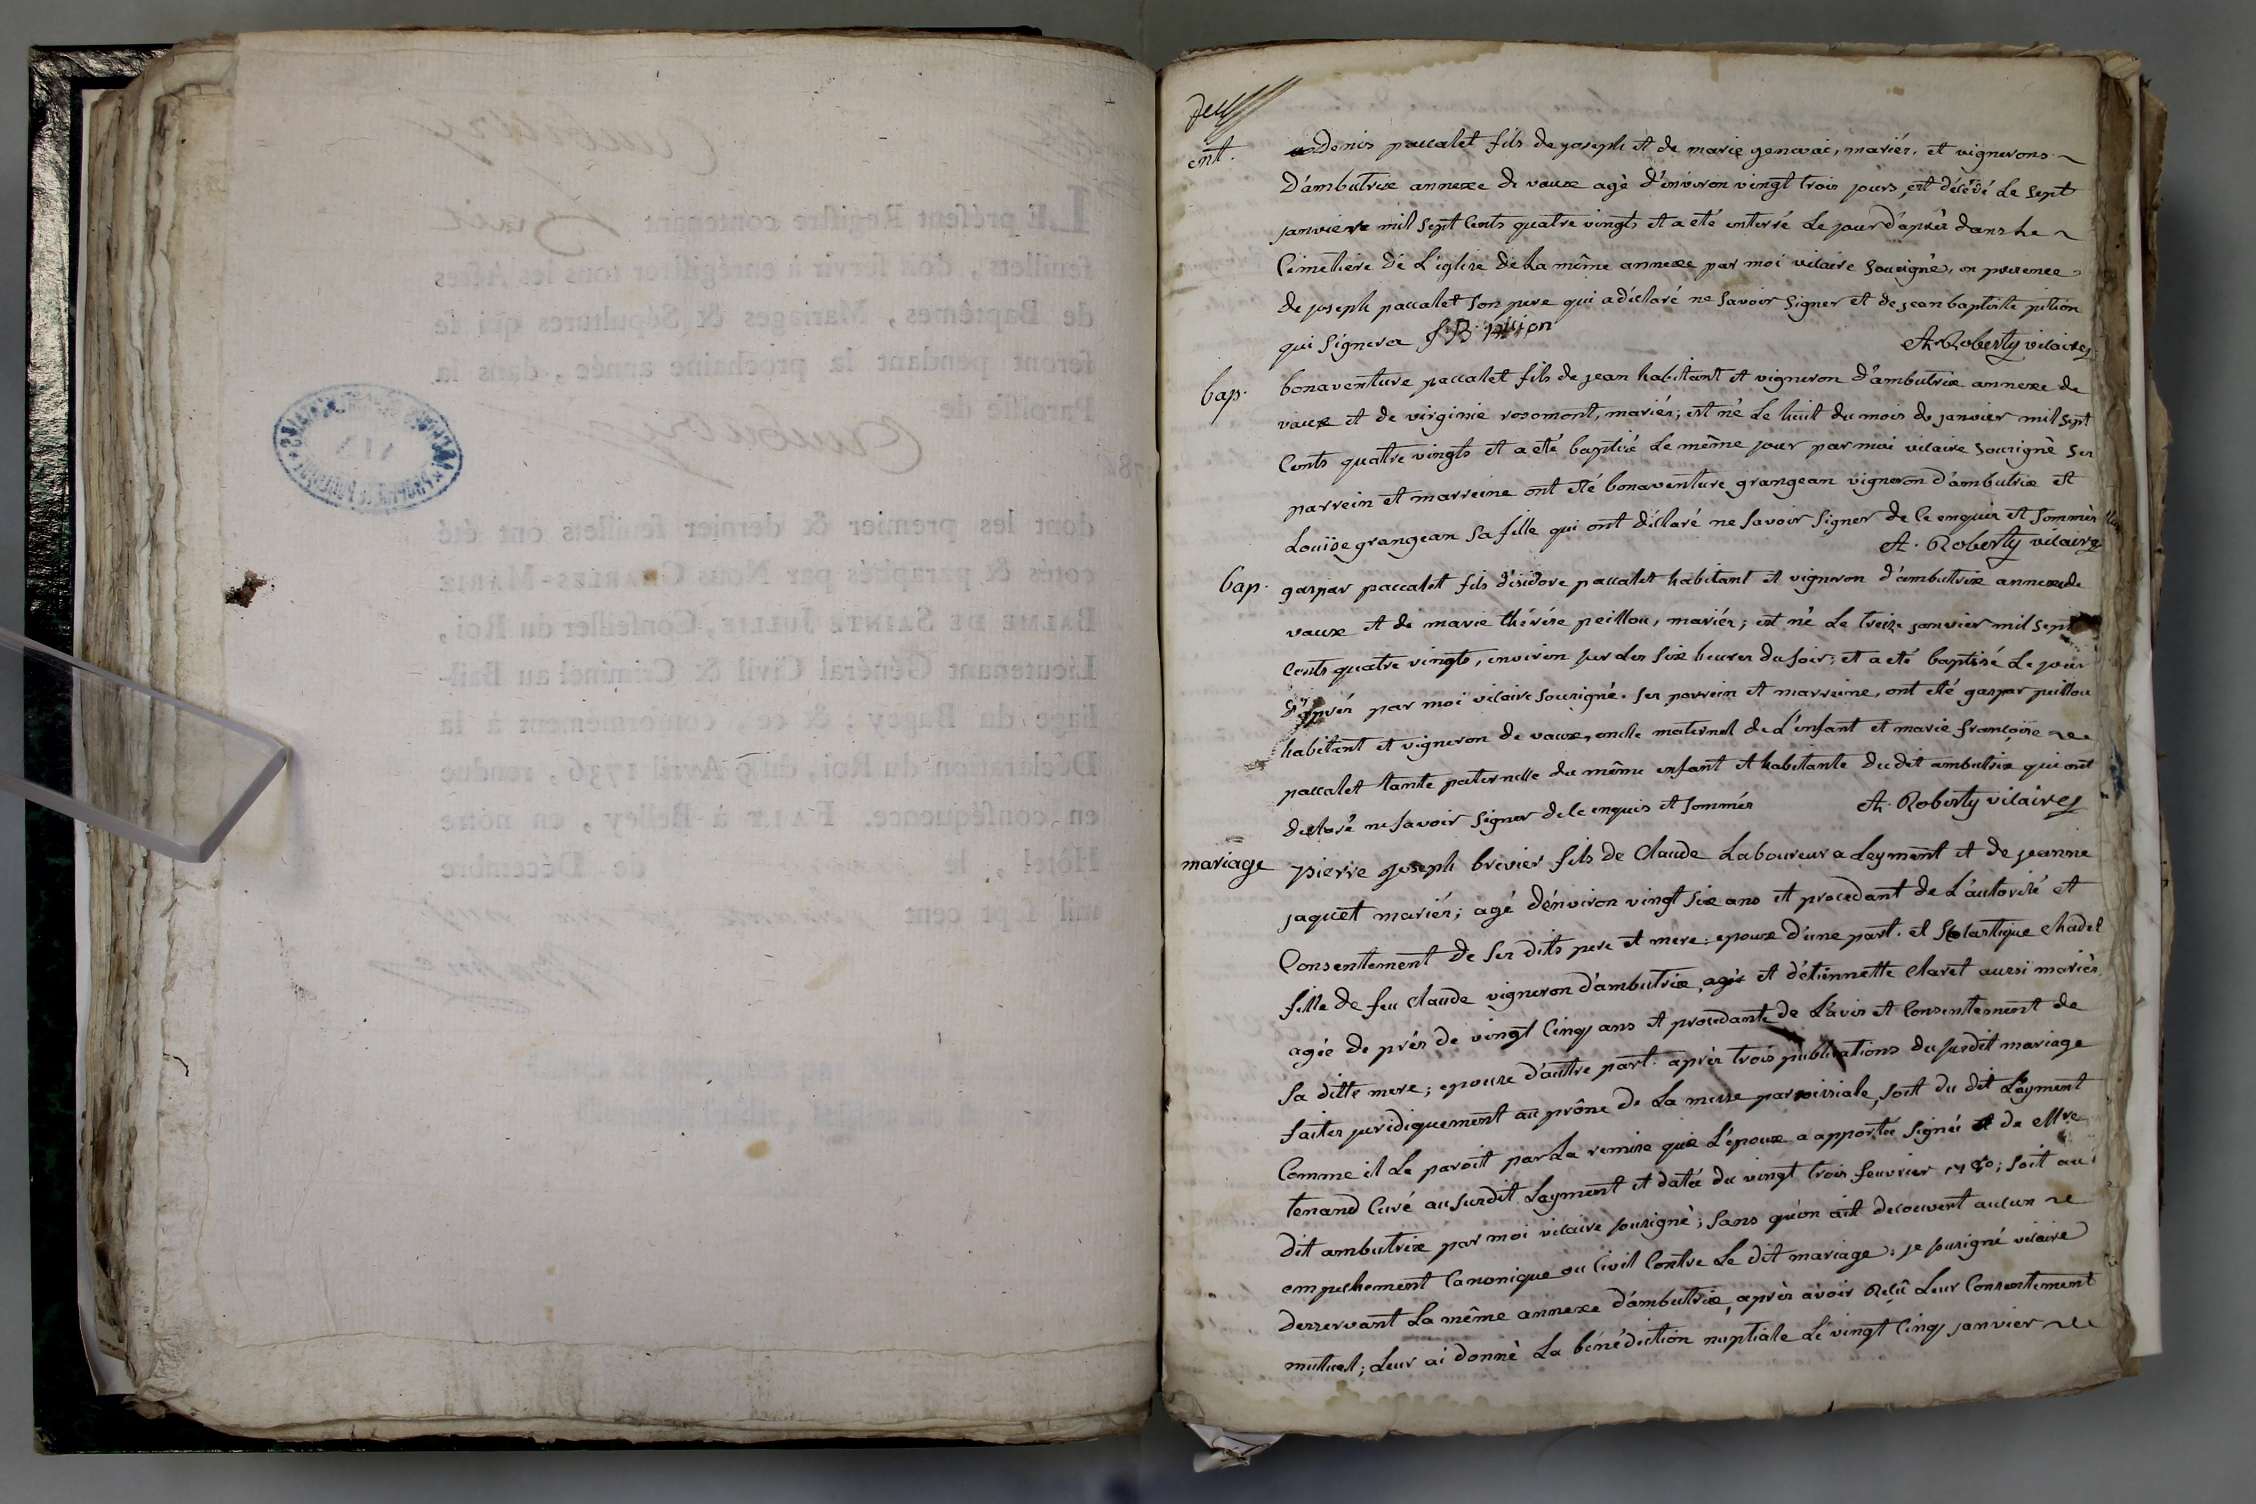 deux
ent. denis paccalet fils de joseph et de marie genevai, mariés, et vignerons
D'ambutrix annexe de vaux agè d'environ vingt trois jours, est décédé Le sept
janvier mil sept Cents quatre vingts et a eté enterré Le jour d'après dans Le
Cimetiere de L'église de La même annexe par moi vicaire sousigné, en presence
de joseph paccalet son pere qui a déclaré ne savoir signer et de jean baptiste pition
qui signera J B pition
A. Roberty vicaire
bap. bonaventure paccalet fils de jean habitant et vigneron d'ambutrix annexe de
vaux et de virginie rosomont, mariés; est né Le huit du mois de janvier mil sept
Cents quatre vingts et a eté baptisé Le même jour par moi vicaire sousigné ses
parrein et marreine ont eté bonaventure grangean vigneron d'ambutrix et
Louïse grangean sa fille qui ont déclaré ne savoir signer de ce enquis et sommés
A. Roberty vicaire
bap. gaspar paccalet fils d'isidore paccalet habitant et vigneron d'ambutrix annexe de
vaux et de marie thérése peillou, mariés; est né Le treize janvier mil sept
Cents quatre vingts, environ sur les six heures du soir; et a eté baptisé Le jour
d'après par moi vicaire sousigné. ses parrein et marreine, ont eté gaspar peillou
habitant et vigneron de vaux, oncle maternel de L'enfant et marie françoise
paccalet tante paternelle du même enfant et habitante du dit ambutrix qui ont
declaré ne savoir signer de ce enquis et sommés A. Roberty vicaire
mariage pierre joseph brevier fils de Claude Laboureur a Leyment et de jeanne
jaquet mariés; agé d'environ vingt six ans et procedant de L'autorité et
Consentement de ses dits pere et mere: epoux d'une part. et scolastique Chadel
fille de feu Claude vigneron d'ambutrix, et d'étiennette Claret aussi mariés
agée de près de vingt Cinq ans et procedante de L'avis et Consentement de
sa ditte mere; epouse d'autre part. après trois publications du susdit mariage
faites juridiquement au prône de La messe paroissiale, soit du dit Leyment
Comme il Le paroit par La remise que L'époux a apportée signée de Mre
tenand Curé au susdit Leyment et datée du vingt trois feuvrier 1780; soit au
dit ambutrix par moi vicaire sousigné; sans qu'on ait decouvert aucun
empechement Canonique ou Civil Contre Le dit mariage: je sousigné vicaire
desservant La même annexe d'ambutrix, après avoir Reçû Leur Consentement
mutuel; Leur ai donné La bénédiction nuptiale Le vingt Cinq janvier